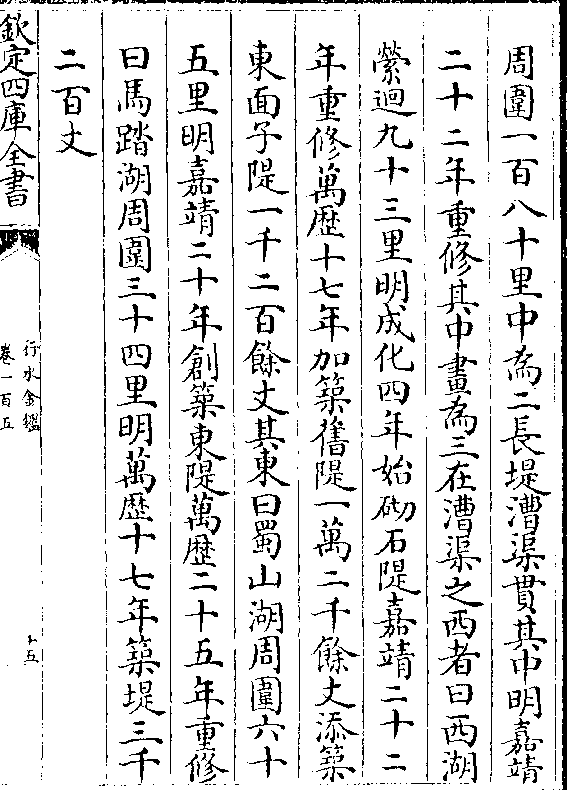 周圍一百八十里中為二長堤漕渠貫其中明嘉靖
二十二年重修其中畫為三在漕渠之西者曰西湖
縈迴九十三里明成化四年始砌石隄嘉靖二十二
年重修萬歴十七年加築舊隄一萬二千餘丈添築
東面子隄一千二百餘丈其東曰蜀山湖周圍六十
五里明嘉靖二十年創築東隄萬歴二十五年重修
曰馬踏湖周圍三十四里明萬歴十七年築堤三千
二百丈
欽定四庫全書
行水金鑑
卷一百五
十五